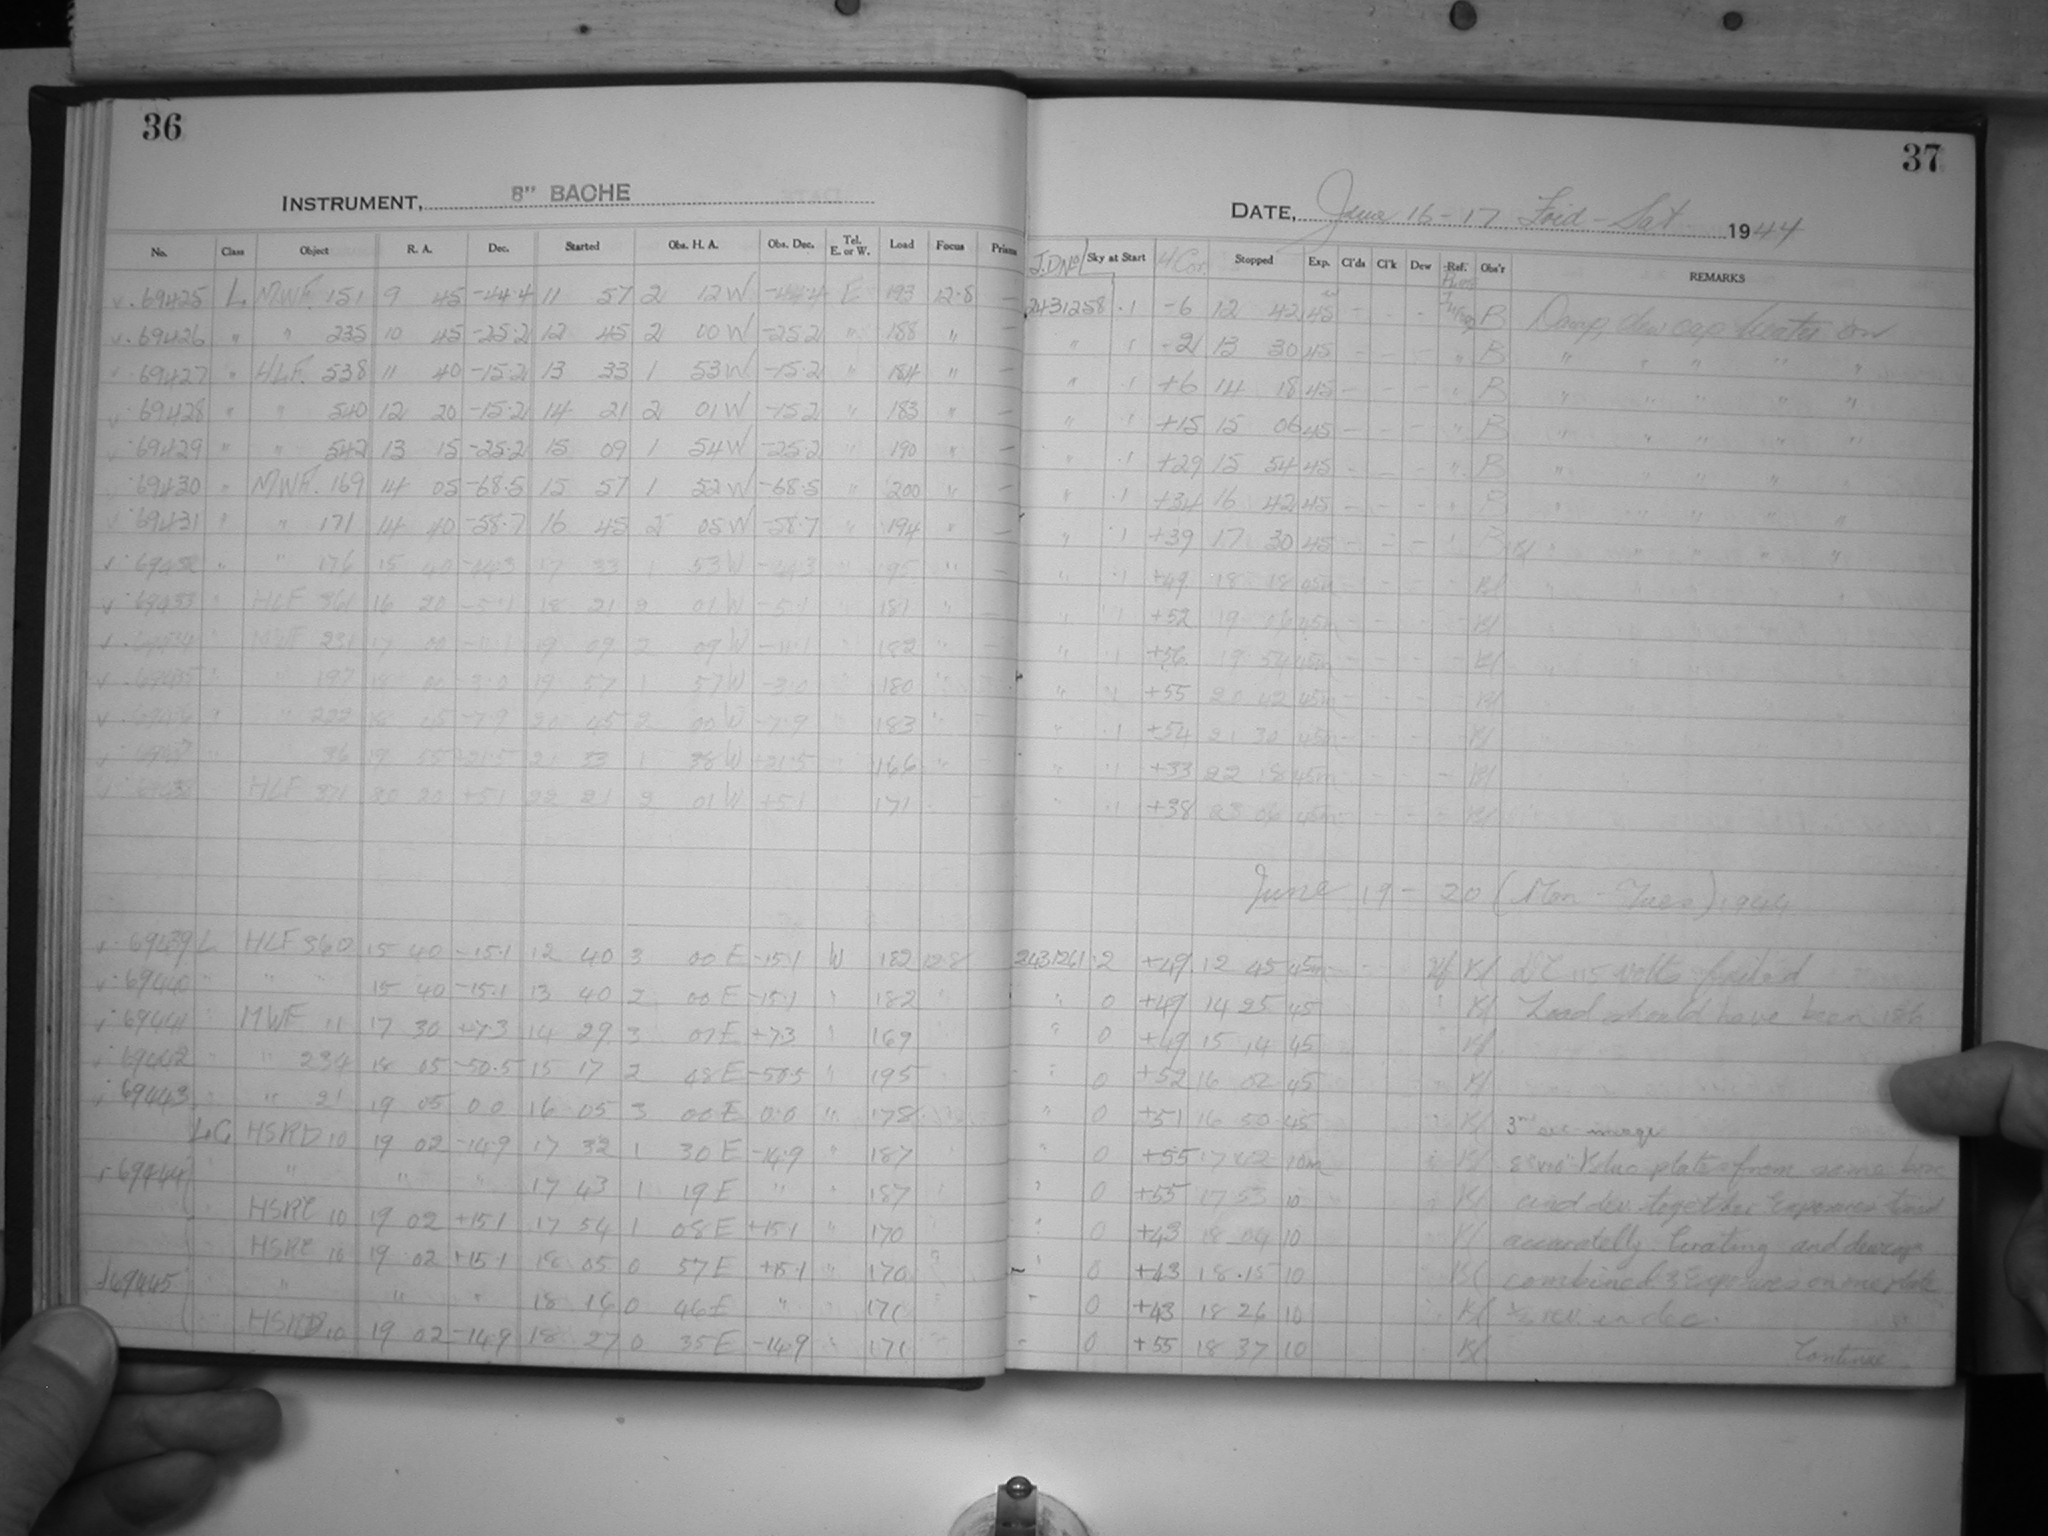 36
INSTRUMENT, 8" BACHE
No. Class Object R. A. Dec. Started Obs. H. A. Obs. Dec. Tel. E. or W. Load Focus Prisms
69425 L MWF. 151 9 45 -44.4 11 57 2 12 W -44.4 E 193 12.8 —
69426 " " 235 10 45 -25.2 12 45 2 00 W -25.2 " 188 " —
69427 " HLF. 538 11 40 -15.2 13 33 1 53 W -15.2 " 184 " —
69428 " " 540 12 20 -15.2 14 21 2 01 W -15.2 " 183 " —
69429 " " 542 13 15 -25.2 15 09 1 54 W -25.2 " 190 " —
69430 " MWF. 169 14 05 -68.5 15 57 1 52 W -68.5 " 200 " —
69431 " " 171 14 40 -58.7 16 45 2 05 W -58.7 " 194 " —
69432 " " 176 15 40 -44.3 17 33 1 53 W -44.3 " 195 " —
69433 " HLF 361 16 20 -5.1 18 21 2 01 W -5.1 " 181 " —
69434 MWF 231 17 00 19 09 2 09 W " 182 "
69435 " 197 18 00 -3.0 19 57 1 57 W -3.0 180
69436 " 222 18 45 -7.9 20 45 2 00 W -7.9 183 "
69437 " 36 19 55 +21.5 21 33 1 38 W +21.5 166 "
69438 HLF 371 20 20 +5.1 22 21 2 01 W +5.1 171
69439 L HLF 360 15 40 -15.1 12 40 3 00 E -15.1 W 182 12.8
69440 " " 15 40 -15.1 13 40 2 00 E -15.1 " 182
69441 MWF 11 17 30 +7.3 14 29 3 01 E +7.3 " 169
69442 " 234 18 05 -50.5 15 17 2 48 E -50.5 " 195
69443 " 21 19 05 0.0 16 05 3 00 E 0.0 " 178
LC HSPD 10 19 02 -14.9 17 32 1 30 E -14.9 " 187
69444 " " " 17 43 1 19 E " " 187
HSPC 10 19 02 +15.1 17 54 1 08 E +15.1 " 170
HSPC 10 19 02 +15.1 18 05 0 57 E +15.1 " 170
69445 " " " 18 16 0 46 E " 171
HSPD 10 19 02 -14.9 18 27 0 35 E -14.9 171
37
DATE, June 16-17 Frid - Sat 1944
J.D No Sky at Start H Cor. Stopped Exp. Cl'ds Cl'k Dew Ref. Obs'r REMARKS
2431258 .1 -6 12 42 45 — — — B Damp, dew cap heater on
" .1 -2 13 30 45 — — — " B " " " " "
" .1 +6 14 18 45 — — — " B " " " " "
" .1 +15 15 06 45 — — — " B " " " " "
" .1 +29 15 54 45 — — — " B " " " " "
" .1 +34 16 42 45 — — — " B " " " " "
" .1 +39 17 30 45 — — — " B " " " " "
" .1 +49 18 18 45m Bl
" .1 +52 19 06 45m Bl
" .1 +56 19 54 45m Bl
" .1 +55 20 42 45m Bl
" .1 +54 21 30 45m Bl
" .1 +33 22 18 45m Bl
" .1 +38 23 06 45m Bl
June 19 - 20 (Mon - Tues) 1944
2431261 .2 +49 12 45 45m Bl DC 115 volts failed
" 0 +49 14 25 45 " Bl Load should have been
" 0 +49 15 14 45 Bl
" 0 +52 16 02 45 Bl
" 0 +51 16 50 45 Bl 3rd image
" 0 +55 17 42 10m Bl 8"x10" plates from same box
" 0 +55 17 53 10 Bl and dev. together Exposures timed
" 0 +43 18 04 10 Bl accuratelly. and dewcap
" 0 +43 18.15 10 Bl combined 3 Exposures on one plate
" 0 +43 18 26 10 Bl in dec.
" 0 +55 18 37 10 Bl Continue